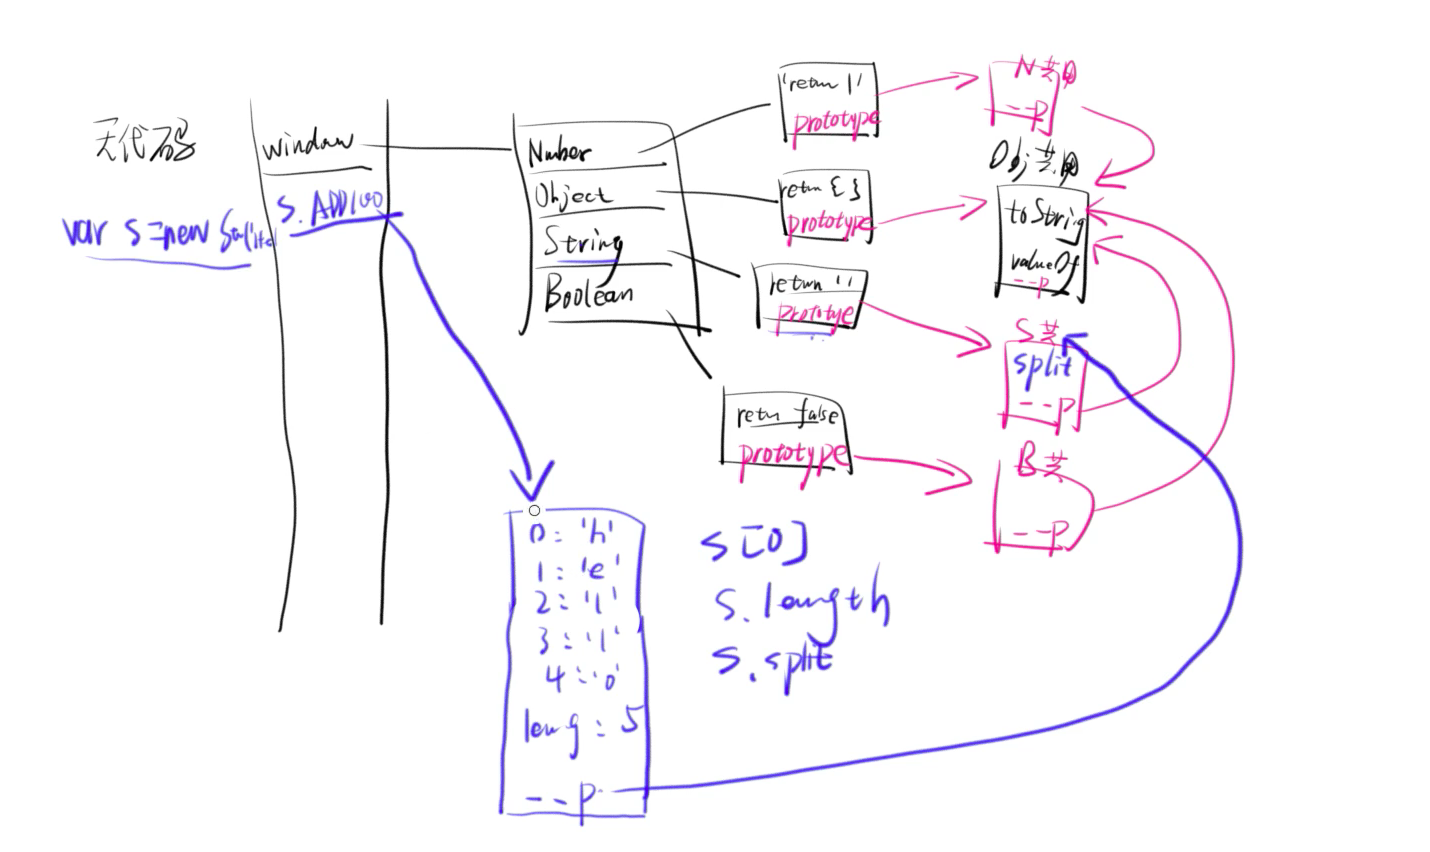 无代码
window
var s=new
S.ADD100
Number
Object
String
Boolean
'return 1'
prototype
return { }
prototype
return ''
prototye
retn false
prototype
N共
--P
Obj共
toString
valueOf
--P
S共
split
--P
B共
--P
0: 'h'
1: 'e'
2: 'l'
3: 'l'
4: 'o'
leng: 5
--P
s[0]
s.length
s.split